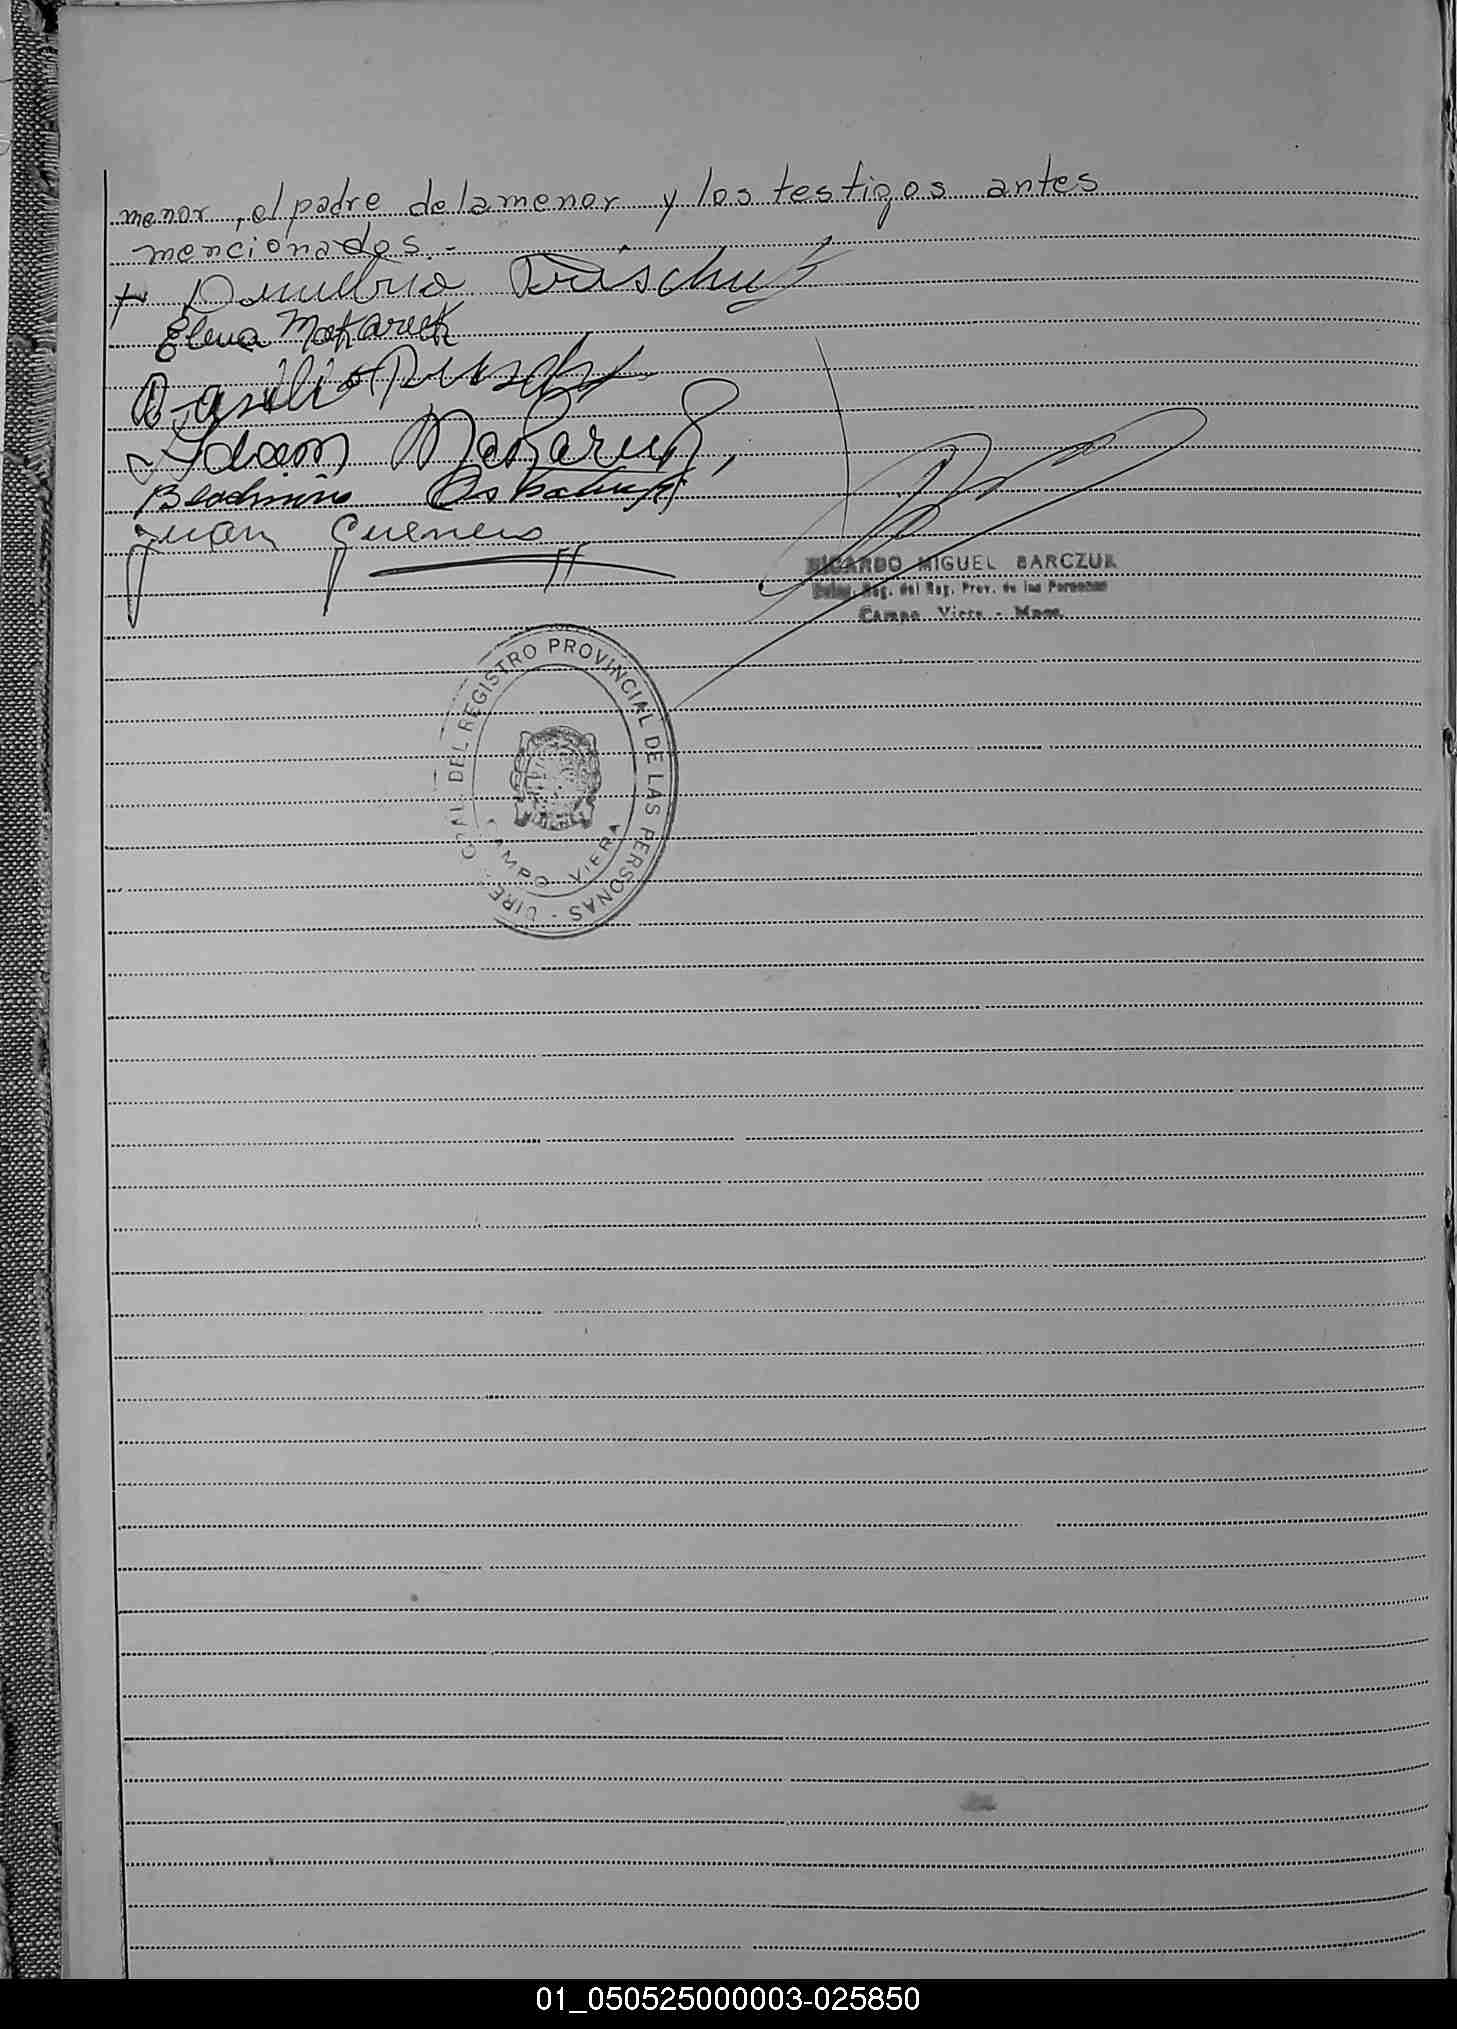 menor, el padre de la menor y los testigos antes
mencionados.-
Elena Makaruk
Basilio
Adam Makaruk,
Juan Guerrero
RICARDO MIGUEL BARCZUK
Deleg. Reg. del Reg. Prov. de las Personas
Campo Viera - Mnes.
DEL REGISTRO PROVINCIAL DE LAS PERSONAS -
CAMPO VIERA
01_050525000003-025850